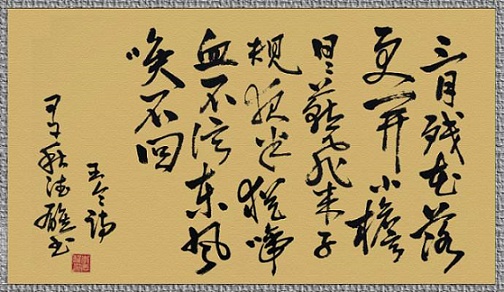 三月残花落
更开小檐
日日燕飞来子
规夜半犹啼
血不信东风
唤不回
王令诗
书